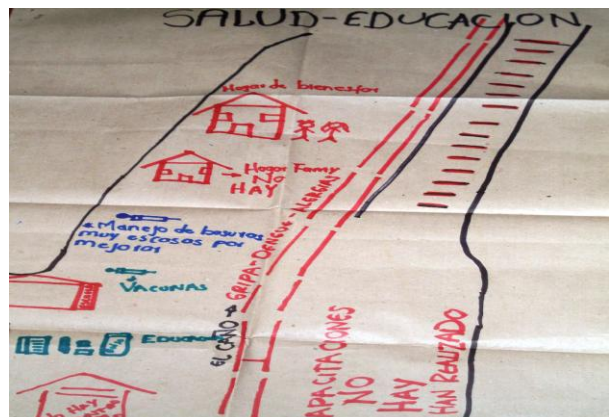 SALUD-EDUCACION
Hogar de bienestar
Hogar Famy
NO
HAY
Manejo de basuras
muy escasos por
mejorar
VACUNAS
GRIPA-DENGUE-ALERGIAS
EL CAÑO
APACITACIONES
NO
HAY
HAN REALIZADO